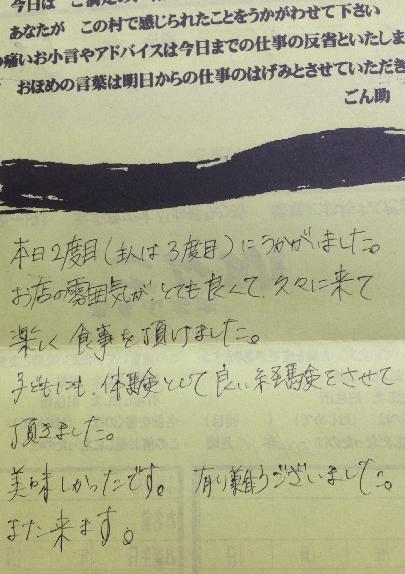 今日は ご満足の
あなたが この村で感じられたことをうかがわせて下さい
痛いお小言やアドバイスは今日までの仕事の反省といたしま
おほめの言葉は明日からの仕事のはげみとさせていただき
ごん助
本日2度目(主人は3度目)にうかがいました。
お店の雰囲気が、とても良くて、久々に来て
楽しく食事を頂けました。
子どもにも、体験として良い経験をさせて
頂きました。
美味しかったです。 有り難うございました。
また来ます。